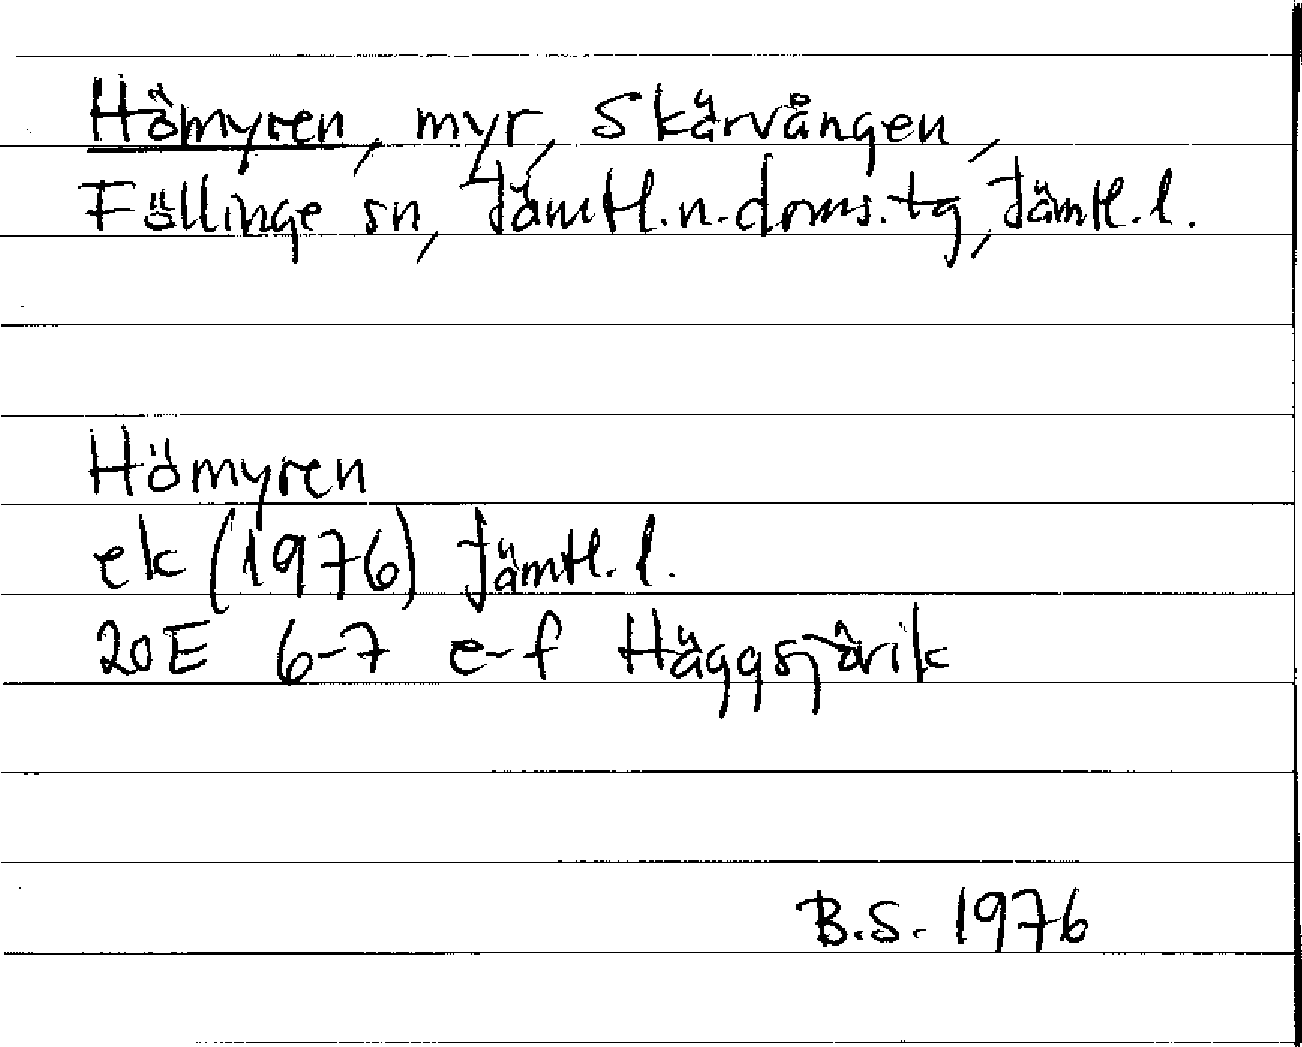 Hömyren, myr, Skärvången,
Föllinge sn, Jämtl.n.doms.tg, Jämtl.l.
Hömyren
ek (1976) Jämtl.l.
20E 6-7 e-f Häggsjövik
B.S. 1976